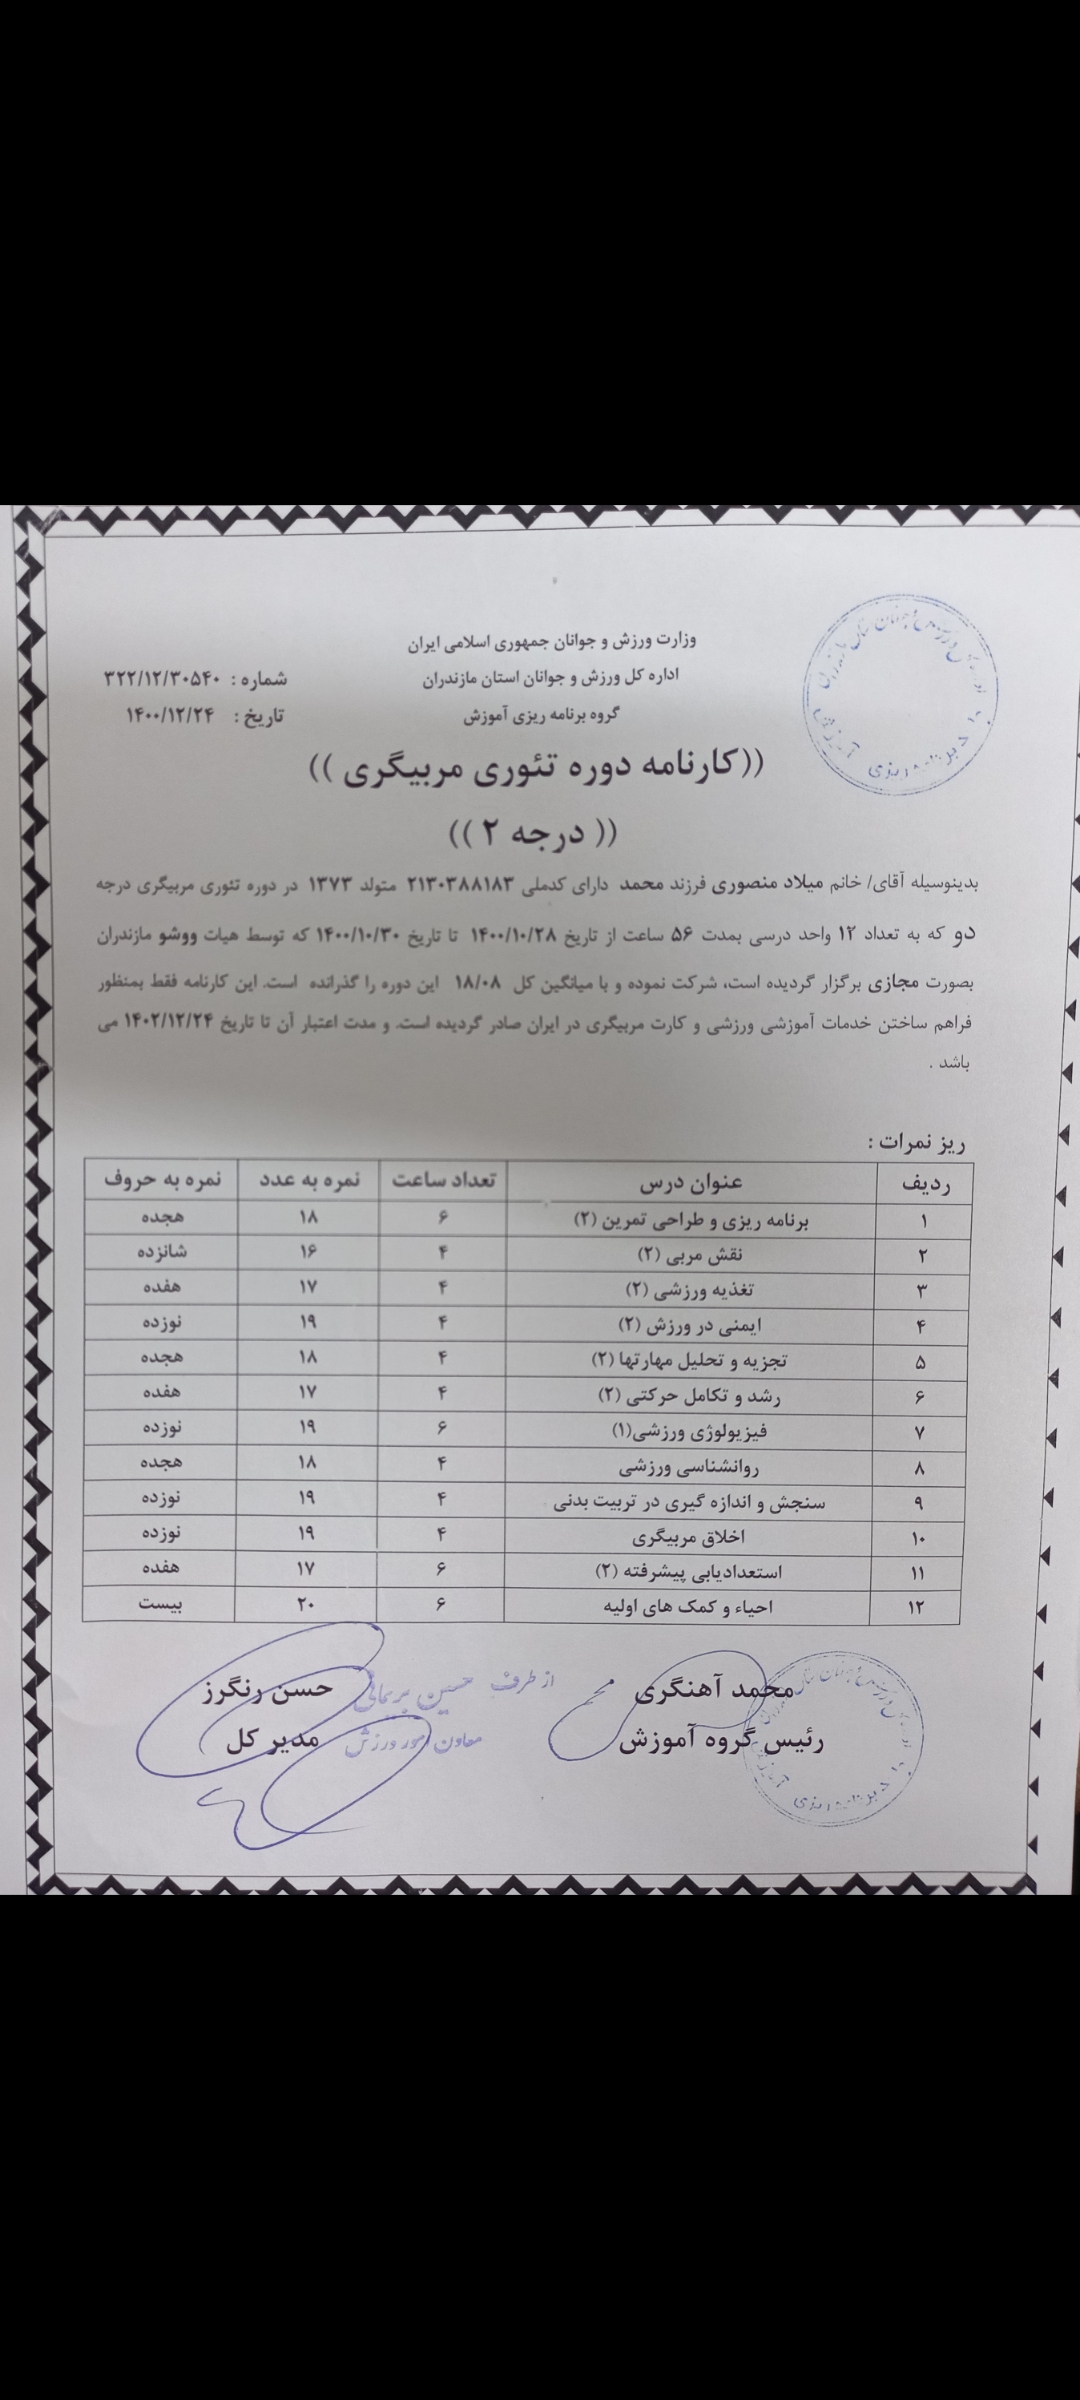 وزارت ورزش و جوانان جمهوری اسلامی ایران
اداره کل ورزش و جوانان استان مازندران
گروه برنامه ریزی آموزش
شماره : ۳۲۲/۱۲/۳۰۵۴۰
تاریخ : ۱۴۰۰/۱۲/۲۴
((کارنامه دوره تئوری مربیگری ))
(( درجه ۲ ))
بدینوسیله آقای/ خانم میلاد منصوری فرزند محمد دارای کدملی ۲۱۳۰۳۸۸۱۸۳ متولد ۱۳۷۳ در دوره تئوری مربیگری درجه
دو که به تعداد ۱۲ واحد درسی بمدت ۵۶ ساعت از تاریخ ۱۴۰۰/۱۰/۲۸ تا تاریخ ۱۴۰۰/۱۰/۳۰ که توسط هیات ووشو مازندران
بصورت مجازی برگزار گردیده است، شرکت نموده و با میانگین کل ۱۸/۰۸ این دوره را گذرانده است. این کارنامه فقط بمنظور
فراهم ساختن خدمات آموزشی ورزشی و کارت مربیگری در ایران صادر گردیده است. و مدت اعتبار آن تا تاریخ ۱۴۰۲/۱۲/۲۴ می
باشد .
ریز نمرات :
ردیف عنوان درس تعداد ساعت نمره به عدد نمره به حروف
۱ برنامه ریزی و طراحی تمرین (۲) ۶ ۱۸ هجده
۲ نقش مربی (۲) ۴ ۱۶ شانزده
۳ تغذیه ورزشی (۲) ۴ ۱۷ هفده
۴ ایمنی در ورزش (۲) ۴ ۱۹ نوزده
۵ تجزیه و تحلیل مهارتها (۲) ۴ ۱۸ هجده
۶ رشد و تکامل حرکتی (۲) ۴ ۱۷ هفده
۷ فیزیولوژی ورزشی(۱) ۶ ۱۹ نوزده
۸ روانشناسی ورزشی ۴ ۱۸ هجده
۹ سنجش و اندازه گیری در تربیت بدنی ۴ ۱۹ نوزده
۱۰ اخلاق مربیگری ۴ ۱۹ نوزده
۱۱ استعدادیابی پیشرفته (۲) ۶ ۱۷ هفده
۱۲ احیاء و کمک های اولیه ۶ ۲۰ بیست
محمد آهنگری
رئیس گروه آموزش
از طرف حسین
معاون امور ورزش
حسن رنگرز
مدیر کل